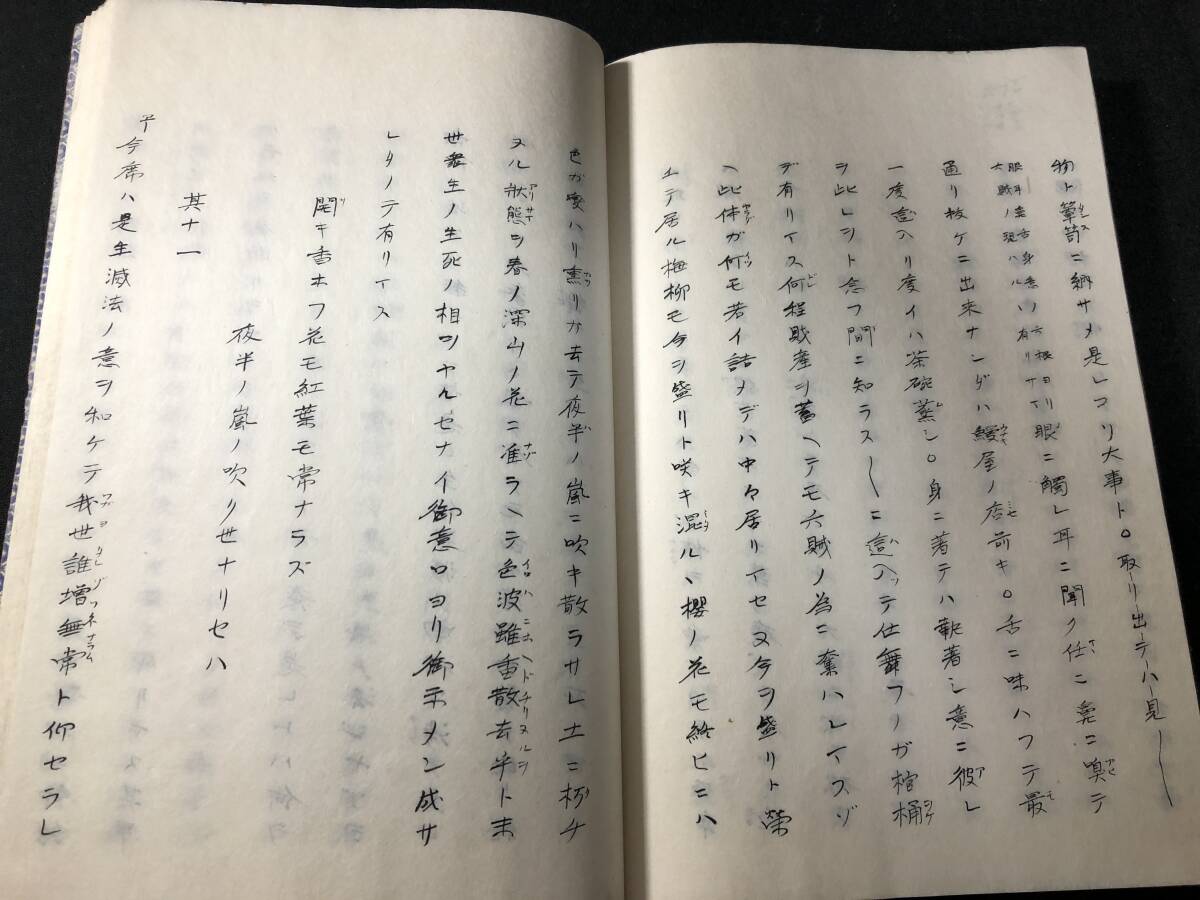 物ト箪笥ニ納サメ是レコソ大事ト○取リ出ーテハ見ー
眼耳鼻舌身意ノ六根ヨリ
六賊ノ現ハル丶有リサマ
眼ニ觸レ耳ニ聞ク任ニ鼻ニ嗅テ
通リ抜ケニ出来ナンダハ鰻屋ノ店前キ○舌ニ味ハフテ最
一度這入リ度イハ茶碗蒸シ○身ニ著テハ執著シ意ニ彼レ
ヲ此レヲト念フ間ニ知ラスーニ這入ッテ仕舞フノガ棺桶
デ有リイス何程財產ヲ蓄ヘテモ六賊ノ為ニ奪ハレイスゾ
ヘ此体ガ何モ若イ詰メデハ中々居リイセヌ今ヲ盛リト榮
エテ居ル梅柳モ今ヲ盛リト咲キ混ル丶櫻ノ花モ終ヒニハ
色ガ変ハリ熏リガ去テ夜半ノ嵐ニ吹キ散ラサレ土ニ朽チ
ヌル狀態ヲ春ノ深山ノ花ニ准ラヘテ色波雖香散去半ト末
世衆生ノ生死ノ相ヲヤルセナイ御意ロヨリ御示メン成サ
レタノテ有リイス
開キ香ホフ花モ紅葉モ常ナラズ
夜半ノ嵐ノ吹ク世ナリセハ
其十一
今席ハ是生滅法ノ意ヲ和ケテ我世誰増無常ト仰セラレ